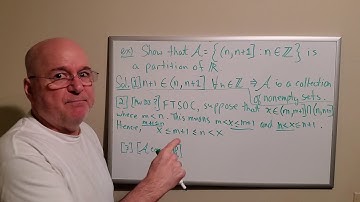 ex) Show that A = { (n, n+1] : n ∈ ℤ } is
a partition of ℝ.
Sol: [1] n+1 ∈ (n, n+1] ∀ n ∈ ℤ ⇒ A is a collection
of nonempty sets.
[2] FTSOC, suppose that x ∈ (m, m+1] ∩ (n, n+1]
where m < n. This means m < x ≤ m+1 and n < x ≤ n+1.
m+1 ≤ n
Hence, x ≤ m+1 ≤ n < x
[3]